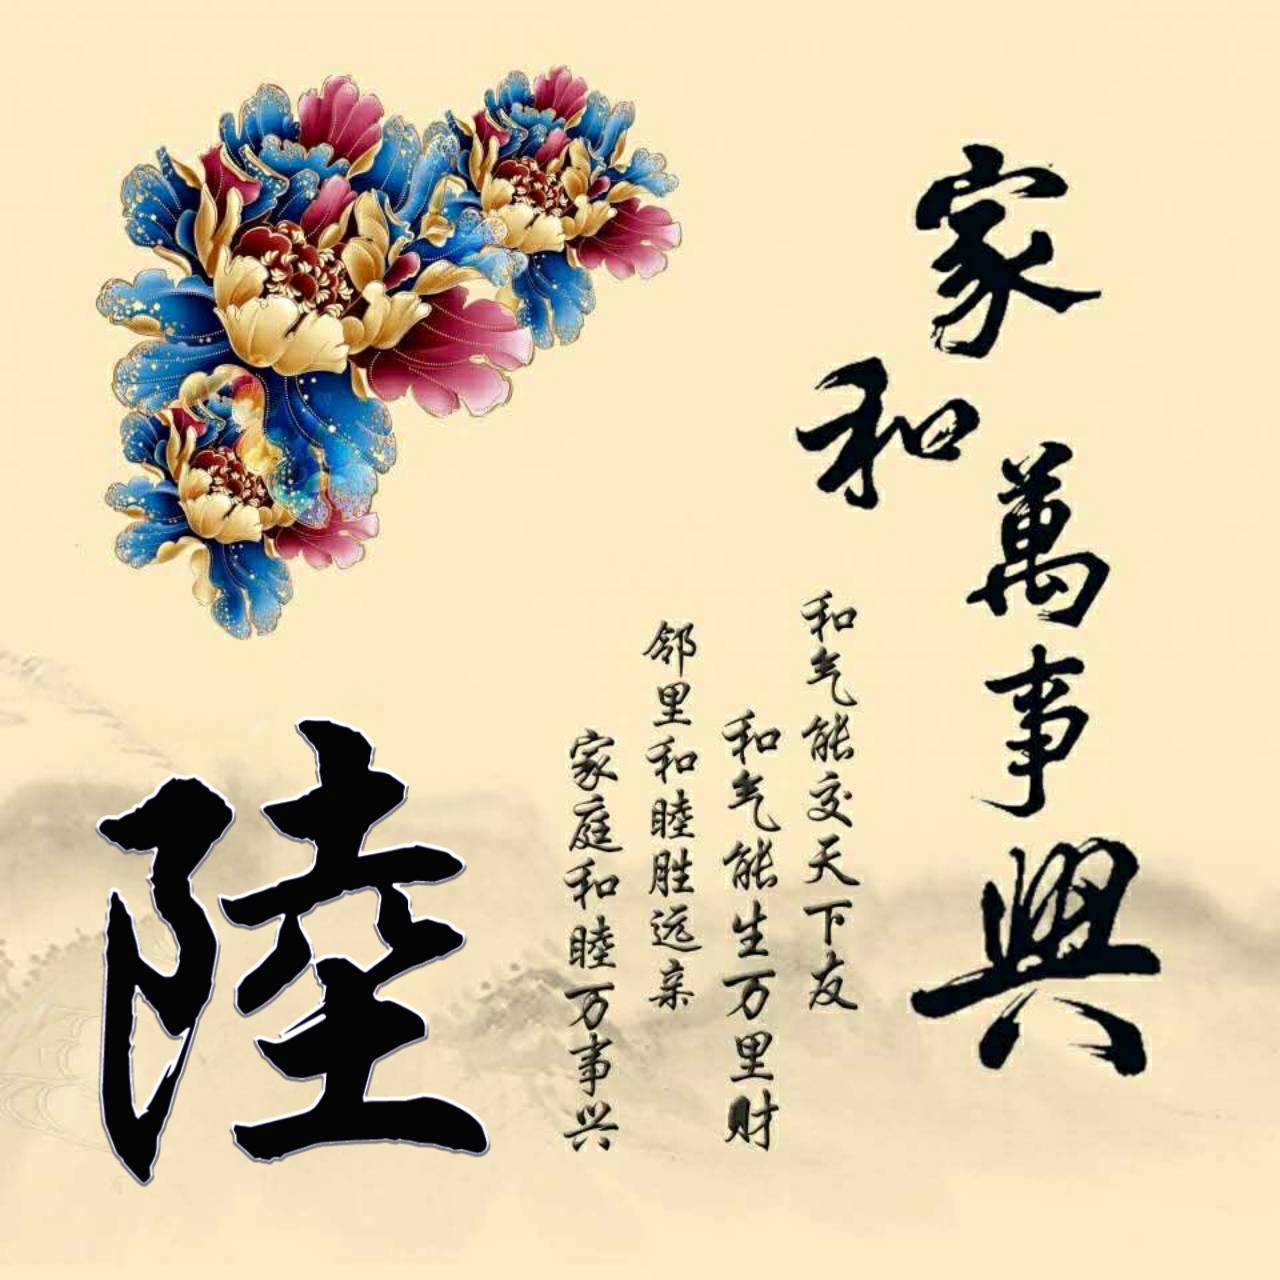 家和萬事興
和气能交天下友
和气能生万里财
邻里和睦胜远亲
家庭和睦万事兴
陸